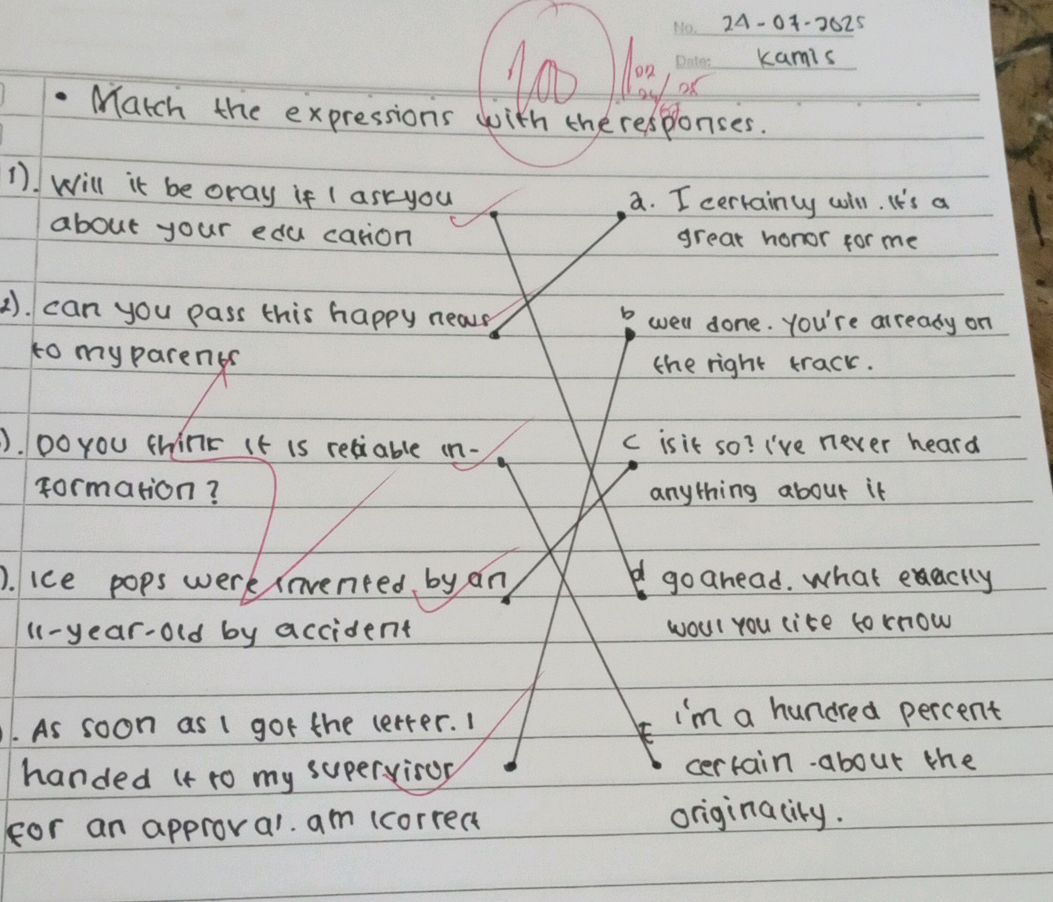 No. 24-07-2025
Date: Kamis
100
• Match the expressions with the responses.
1). Will it be okay if I ask you
about your edu cation
a. I certainly will. It's a
great honor for me
2). can you pass this happy news
to my parents
b well done. You're already on
the right track.
). DO you think it is reliable in-
formation?
c is it so? I've never heard
anything about it
). Ice pops were invented by an
11-year-old by accident
d go ahead. What exactly
woul you like to know
). As soon as I got the letter. I
handed it to my supervisor
for an approval. am I correct
E i'm a hundred percent
certain -about the
originality.